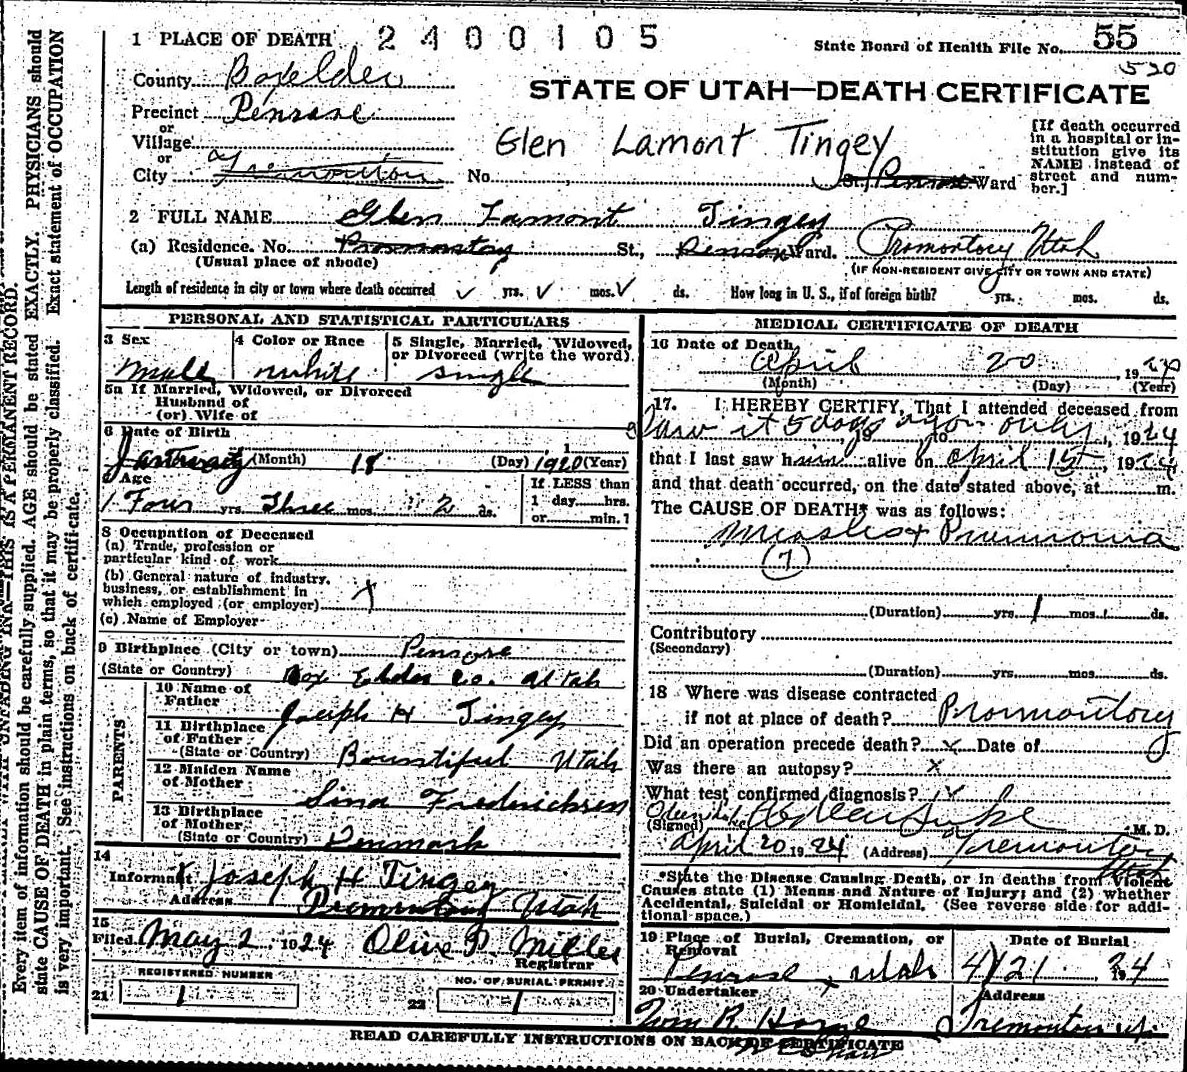 1 PLACE OF DEATH 2400105
State Board of Health File No. 55
520
County Boxelder
STATE OF UTAH—DEATH CERTIFICATE
Precinct Penrose
or
Village
or
City Tremonton
Glen Lamont Tingey
No. St. Penrose Ward
[If death occurred in a hospital or institution give its NAME instead of street and number.]
2 FULL NAME Glen Lamont Tingey
(a) Residence. No. Promontory St., Penrose Ward. Promontory Utah
(Usual place of abode)
(IF NON-RESIDENT GIVE CITY OR TOWN AND STATE)
Length of residence in city or town where death occurred yrs. mos. ds. How long in U. S., if of foreign birth? yrs. mos. ds.
PERSONAL AND STATISTICAL PARTICULARS
3 Sex
Male
4 Color or Race
white
5 Single, Married, Widowed, or Divorced (write the word)
single
5a If Married, Widowed, or Divorced
Husband of
(or) Wife of
6 Date of Birth
January (Month) 18 (Day) 1920 (Year)
Age
Four yrs. Three mos. 2 ds.
If LESS than
1 day hrs.
or min.?
8 Occupation of Deceased
(a) Trade, profession or
particular kind of work
(b) General nature of industry,
business, or establishment in
which employed (or employer) x
(c) Name of Employer
9 Birthplace (City or town) Penrose
(State or Country) Box Elder co. Utah
PARENTS
10 Name of Father Joseph H Tingey
11 Birthplace of Father
(State or Country) Bountiful Utah
12 Maiden Name of Mother Sina Fredericksen
13 Birthplace of Mother
(State or Country) Denmark
14
Informant Joseph H Tingey
Address Promontory Utah
15
Filed May 2, 1924 Olive P. Miller
Registrar
REGISTERED NUMBER
21 1
NO. OF BURIAL PERMIT
22 1
MEDICAL CERTIFICATE OF DEATH
16 Date of Death
April 20, 1924
(Month) (Day) (Year)
17. I HEREBY CERTIFY, That I attended deceased from
Saw it 5 days ago only, 19 to, 1924
that I last saw him alive on April 15, 1924
and that death occurred, on the date stated above, at m.
The CAUSE OF DEATH* was as follows:
Measles + Pneumonia
(7)
(Duration) yrs. 1 mos. ds.
Contributory
(Secondary)
(Duration) yrs. mos. ds.
18 Where was disease contracted
if not at place of death? Promontory
Did an operation precede death? x Date of
Was there an autopsy? x
What test confirmed diagnosis?
(Signed) M. D.
April 20 1924 (Address) Tremonton
Utah
*State the Disease Causing Death, or in deaths from Violent
Causes state (1) Means and Nature of Injury; and (2) whether
Accidental, Suicidal or Homicidal. (See reverse side for additional space.)
19 Place of Burial, Cremation, or Removal
Penrose, Utah
Date of Burial
4/21 24
20 Undertaker
Address
Tremonton
READ CAREFULLY INSTRUCTIONS ON BACK OF CERTIFICATE
THIS IS A PERMANENT RECORD.
Every item of information should be carefully supplied. AGE should be stated EXACTLY. PHYSICIANS should
state CAUSE OF DEATH in plain terms, so that it may be properly classified. Exact statement of OCCUPATION
is very important. See instructions on back of certificate.